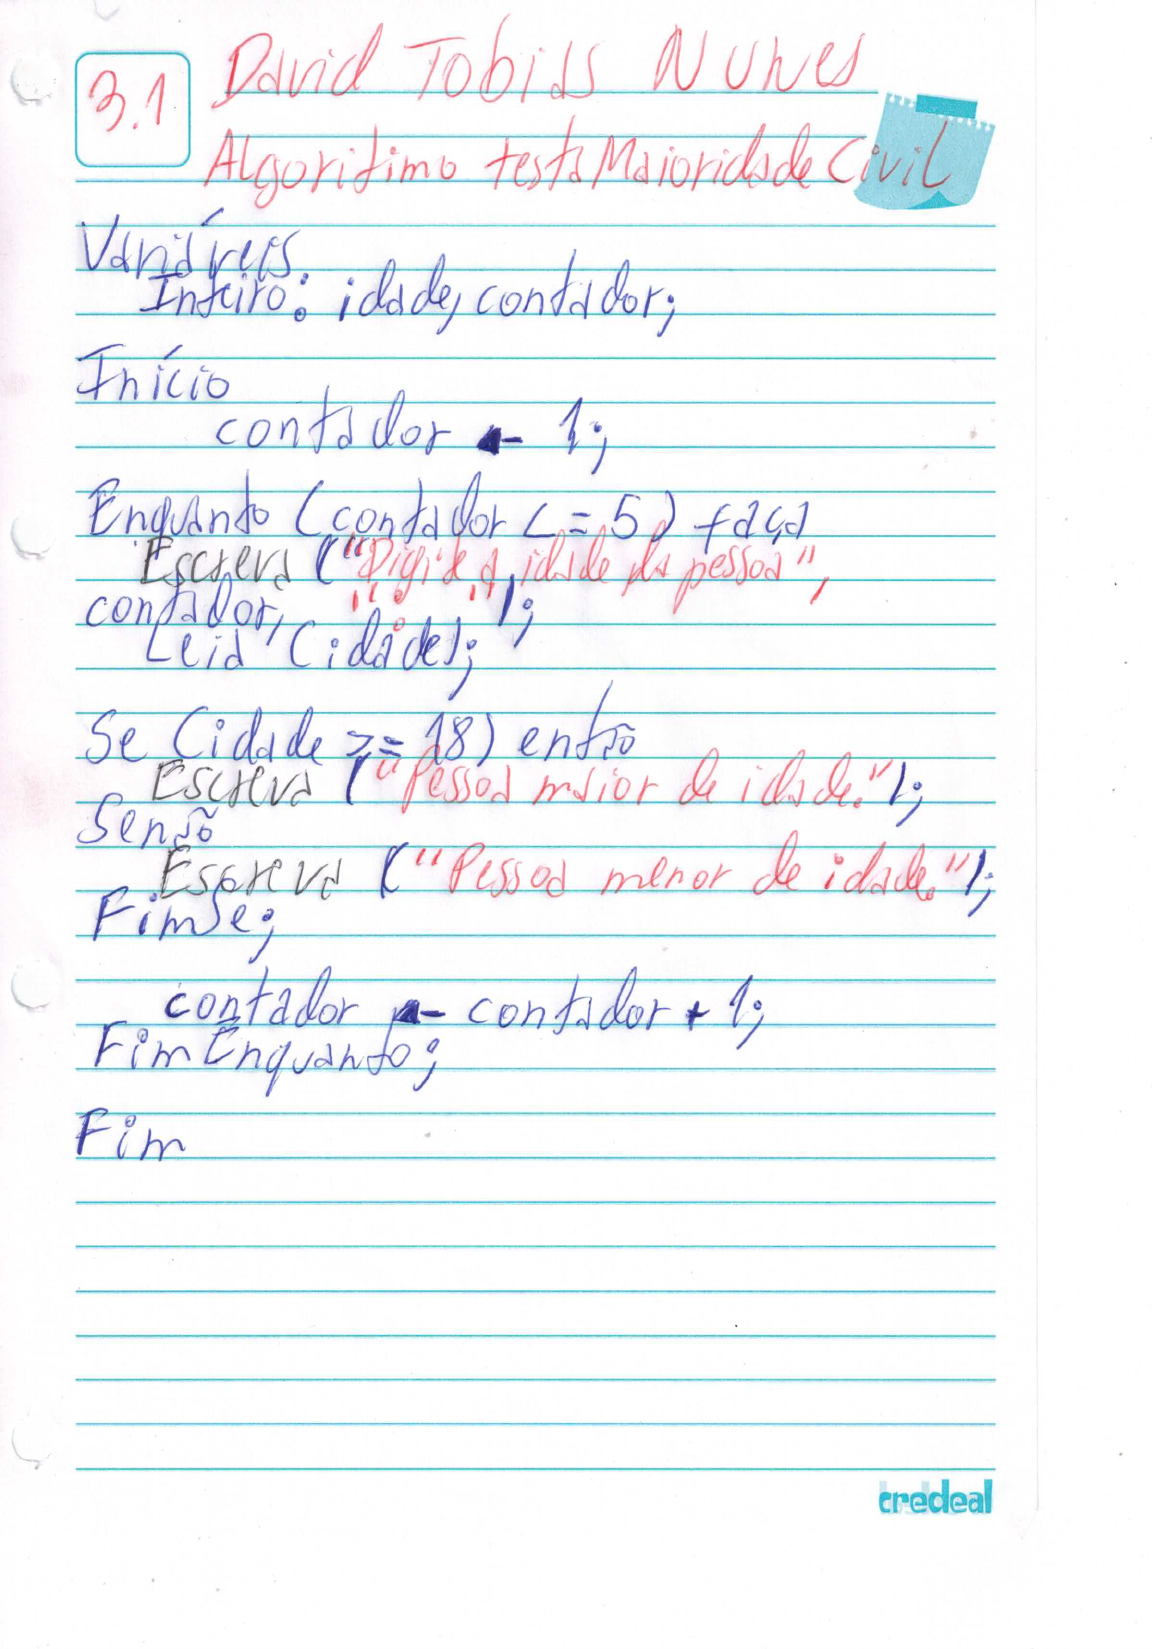 3.1
David Tobias Nunes
Algoritimo testaMaioridadeCivil
Variáveis
Inteiro: idade, contador;
Início
contador ← 1;
Enquanto (contador <= 5) faça
Escreva ("Digite a idade da pessoa",
contador, ": ");
Leia (idade);
Se (idade >= 18) então
Escreva ("Pessoa maior de idade.");
Senão
Escreva ("Pessoa menor de idade.");
FimSe;
contador ← contador + 1;
FimEnquanto;
Fim
credeal